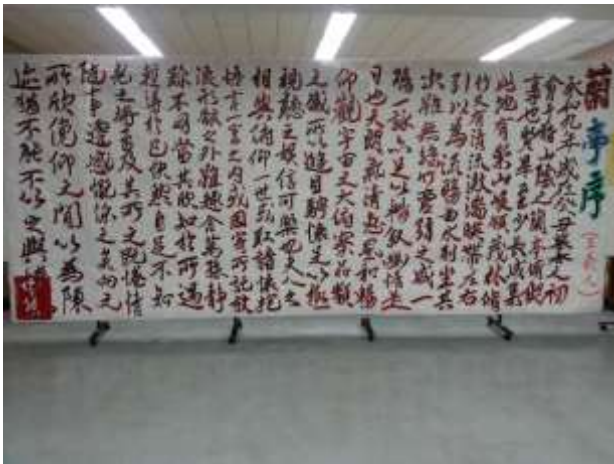 蘭亭序
(王羲之)
永和九年歲在癸丑暮春之初
會于會稽山陰之蘭亭脩禊
事也群賢畢至少長咸集
此地有崇山峻領茂林脩
竹又有清流激湍暎帶左右
引以為流觴曲水列坐其
次雖無絲竹管弦之盛一
觴一詠亦足以暢叙幽情是
日也天朗氣清惠風和暢
仰觀宇宙之大俯察品類
之盛所以遊目騁懷足以極
視聽之娛信可樂也夫人之
相與俯仰一世或取諸懷抱
悟言一室之內或因寄所託放
浪形骸之外雖趣舍萬殊靜
躁不同當其欣於所遇
暫得於己快然自足不知
老之將至及其所之既倦情
隨事遷感慨係之矣向之
所欣俛仰之間以為陳
迹猶不能不以之興懷